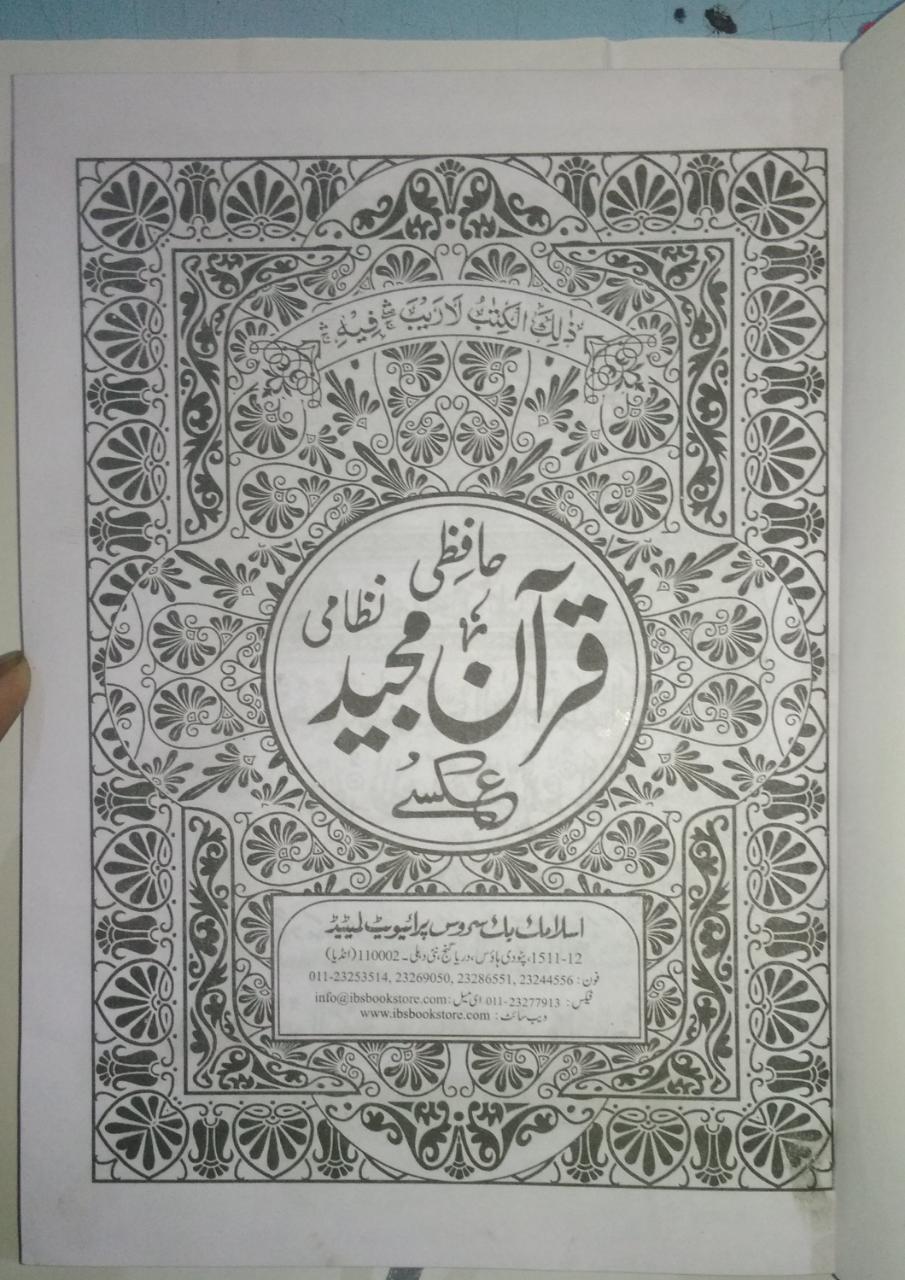 ذٰلِكَ الْكِتٰبُ لَا رَيْبَ ۛۚ فِيْهِ ۛۚ
حافِظی
قرآن مجید
نظامی
عکسی
اسلامک بک سروس پرائیویٹ لمیٹیڈ
1511-12، پٹودی ہاؤس، دریا گنج، نئی دہلی ۔ 110002 (انڈیا)
فون : 011-23253514, 23269050, 23286551, 23244556
فیکس : 011-23277913 ای میل : info@ibsbookstore.com
ویب سائٹ : www.ibsbookstore.com